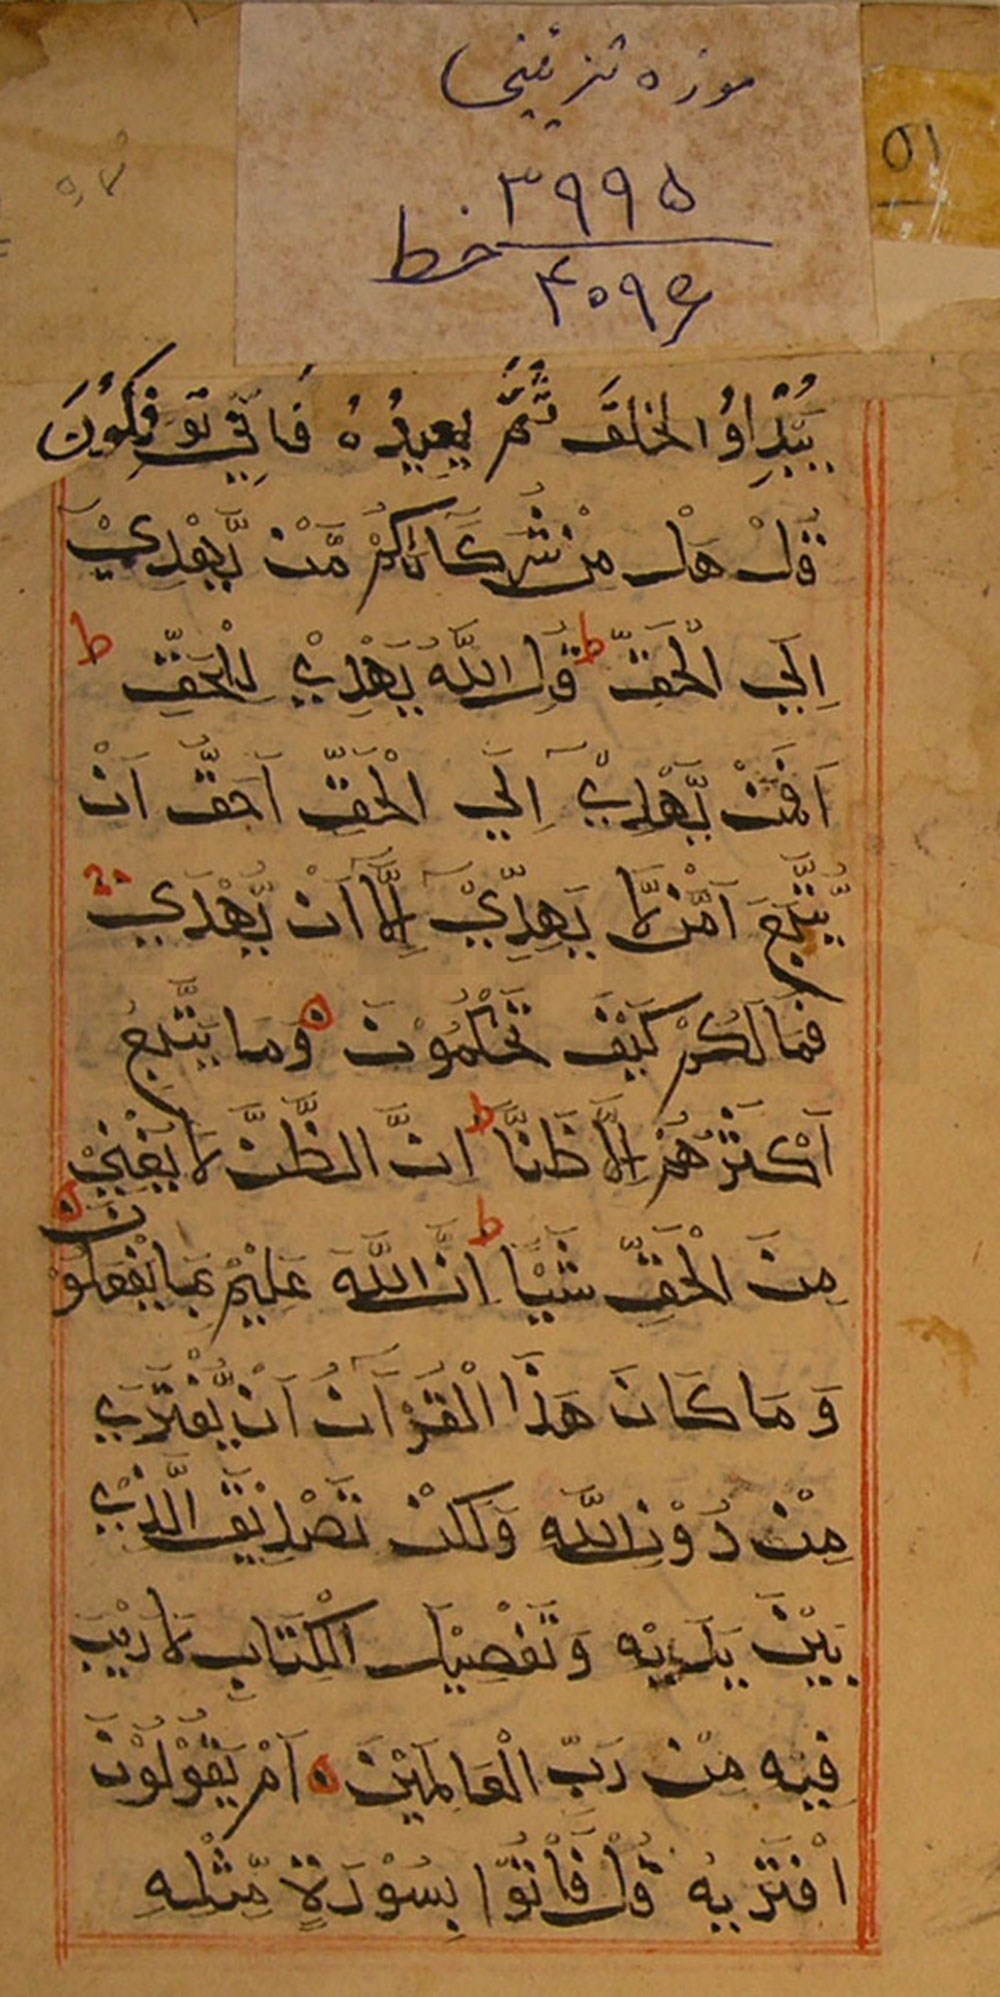 موزه تزیینی
۵۱
۳۹۹۵
خط
۴۰۹۶
يَبْدَاؤُ الخَلقَ ثُمَّ يعِيدُهُ فَاَنّٰي تؤفِكُونَ
قُلْ هَلْ مِنْ شُرَكَآئِكُمْ مَّنْ يَّهْدِيْٓ
اِلَي الْحَقِّ ط قُلِ اللّٰهُ يَهْدِيْ لِلْحَقِّ ط
اَفَمَنْ يَّهْدِيْٓ اِلَي الْحَقِّ اَحَقُّ اَنْ
يُّتَّبَعَ اَمَّنْ لَّا يَهِدِّيْٓ اِلَّآ اَنْ يُّهْدَي
فَمَا لَكُمْ كَيْفَ تَحْكُمُوْنَ ٥ وَمَا يَتَّبِعُ
اَكْثَرُهُمْ اِلَّا ظَنًّا ط اِنَّ الظَّنَّ لَا يُغْنِيْ
مِنَ الْحَقِّ شَيْـًٔا ط اِنَّ اللّٰهَ عَلِيْمٌ بِمَا يَفْعَلُوْنَ ٥
وَمَا كَانَ هٰذَا الْقُرْآنُ اَنْ يُّفْتَرٰي
مِنْ دُوْنِ اللّٰهِ وَلٰكِنْ تَصْدِيْقَ الَّذِيْ
بَيْنَ يَدَيْهِ وَتَفْصِيْلَ الْكِتَابِ لَا رَيْبَ
فِيْهِ مِنْ رَبِّ الْعَالَمِيْنَ ٥ اَمْ يَقُوْلُوْنَ
افْتَرٰيهُ قُلْ فَاْتُوْا بِسُوْرَةٍ مِّثْلِهِ